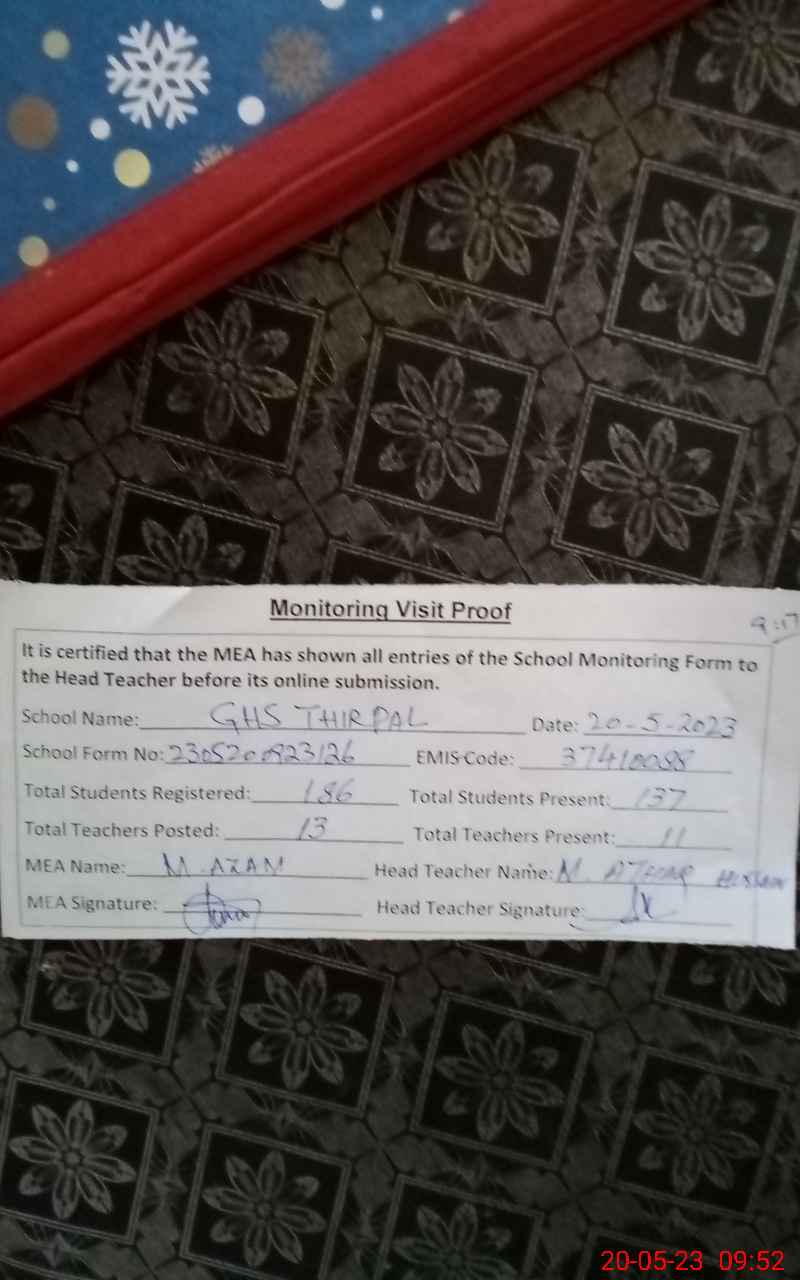 Monitoring Visit Proof
9:17
It is certified that the MEA has shown all entries of the School Monitoring Form to
the Head Teacher before its online submission.
School Name: GHS THIRPAL Date: 20-5-2023
School Form No: 2305200923126 EMIS Code: 37410088
Total Students Registered: 186 Total Students Present: 137
Total Teachers Posted: 13 Total Teachers Present: 11
MEA Name: M. AZAM Head Teacher Name: M. ATHAR HUSSAIN
MEA Signature: Head Teacher Signature:
20-05-23 09:52